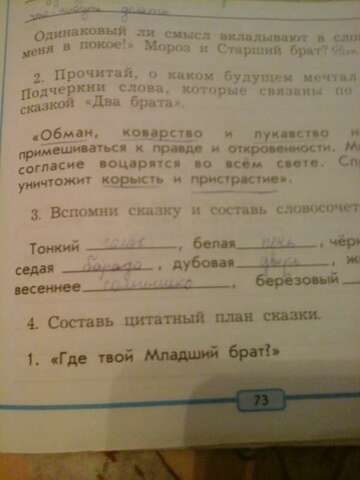 что
делать
Одинаковый ли смысл вкладывают в сло
меня в покое!» Мороз и Старший брат?
2. Прочитай, о каком будущем мечтал
Подчеркни слова, которые связаны по
сказкой «Два брата».
«Обман, коварство и лукавство н
примешиваться к правде и откровенности. Ми
согласие воцарятся во всём свете. Сп
уничтожит корысть и пристрастие».
3. Вспомни сказку и составь словосочет
Тонкий голос, белая печь, чёр
седая барада, дубовая дверь, ж
весеннее солнышко, берёзовый
4. Составь цитатный план сказки.
1. «Где твой Младший брат?»
73